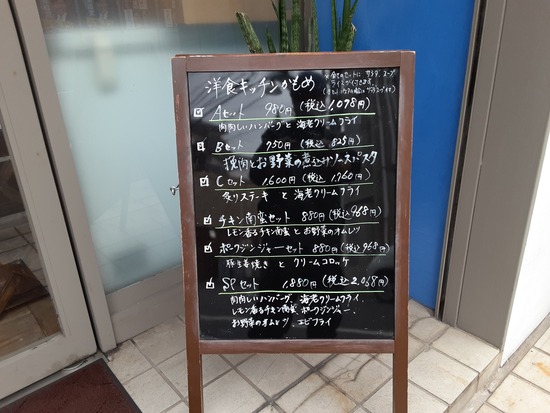 洋食キッチンかもめ
各セットに サラダ、スープ
ライスが付きます。
Aセット 980円(税込1,078円)
肉肉しいハンバーグと 海老クリームフライ
Bセット 750円(税込 825円)
挽肉とお野菜の煮込みソースパスタ
Cセット 1,600円(税込 1,760円)
炙りステーキ と 海老クリームフライ
チキン南蛮セット 880円(税込968円)
レモン香るチキン南蛮 と お野菜のオムレツ
ポークジンジャーセット 880円(税込968円)
豚生姜焼き と クリームコロッケ
SPセット 1,880円(税込2,068円)
肉肉しいハンバーグ、海老クリームフライ、
レモン香るチキン南蛮 ポークジンジャー、
お野菜のオムレツ、エビフライ